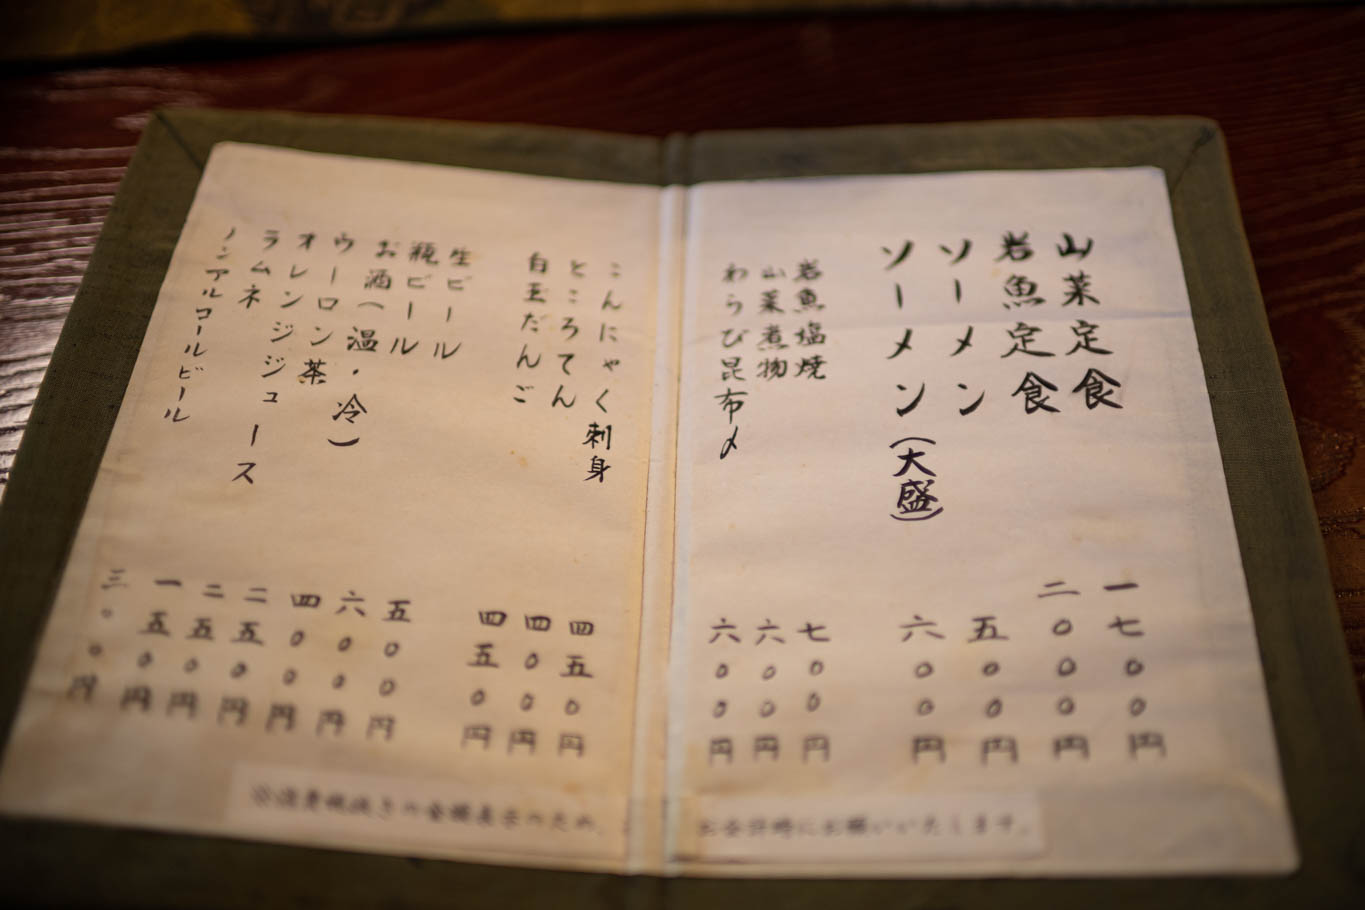 山菜定食 一七〇〇円
岩魚定食 二〇〇〇円
ソーメン 五〇〇円
ソーメン(大盛) 六〇〇円
岩魚塩焼 七〇〇円
山菜煮物 六〇〇円
わらび昆布〆 六〇〇円
こんにゃく刺身 四五〇円
ところてん 四〇〇円
白玉だんご 四五〇円
生ビール 五〇〇円
瓶ビール 六〇〇円
お酒(温・冷) 四〇〇円
ウーロン茶 二五〇円
オレンジジュース 二五〇円
ラムネ 一五〇円
ノンアルコールビール 三〇〇円
※消費税抜きの金額表示のため、お会計時にお願いいたします。